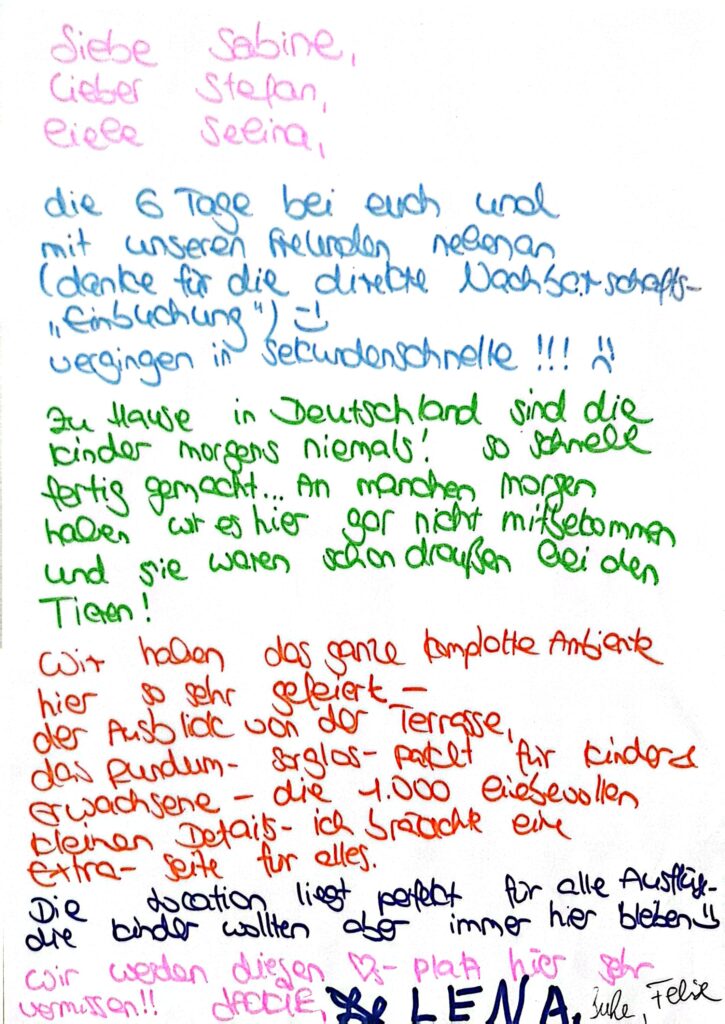 Liebe Sabine,
Lieber Stefan,
liebe Selina,
die 6 Tage bei euch und
mit unseren Freunden nebenan
(danke für die direkte Nachbarschafts-
„Einbuchung") :)
vergingen in Sekundenschnelle !!! :(
Zu Hause in Deutschland sind die
Kinder morgens niemals! so schnell
fertig gemacht... An manchen Morgen
haben wir es hier gar nicht mitbekommen
und sie waren schon draußen bei den
Tieren!
Wir haben das ganze komplette Ambiente
hier so sehr gefeiert –
der Ausblick von der Terrasse,
das Rundum-sorglos-paket für Kinder &
Erwachsene – die 1.000 liebevollen
kleinen Details – ich bräuchte eine
extra-seite für alles.
Die Location liegt perfekt für alle Ausflüge-
die Kinder wollten aber immer hier bleiben :)
Wir werden diesen ♡-platz hier sehr
vermissen!! LENA, Felix